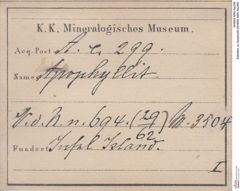 K. K. Mineralogisches Museum.
Acq. Post A. c. 299.
Name Apophyllit.
V. d. N. n. 694. (29/62) M. 3504
Fundort Insel Island.
I